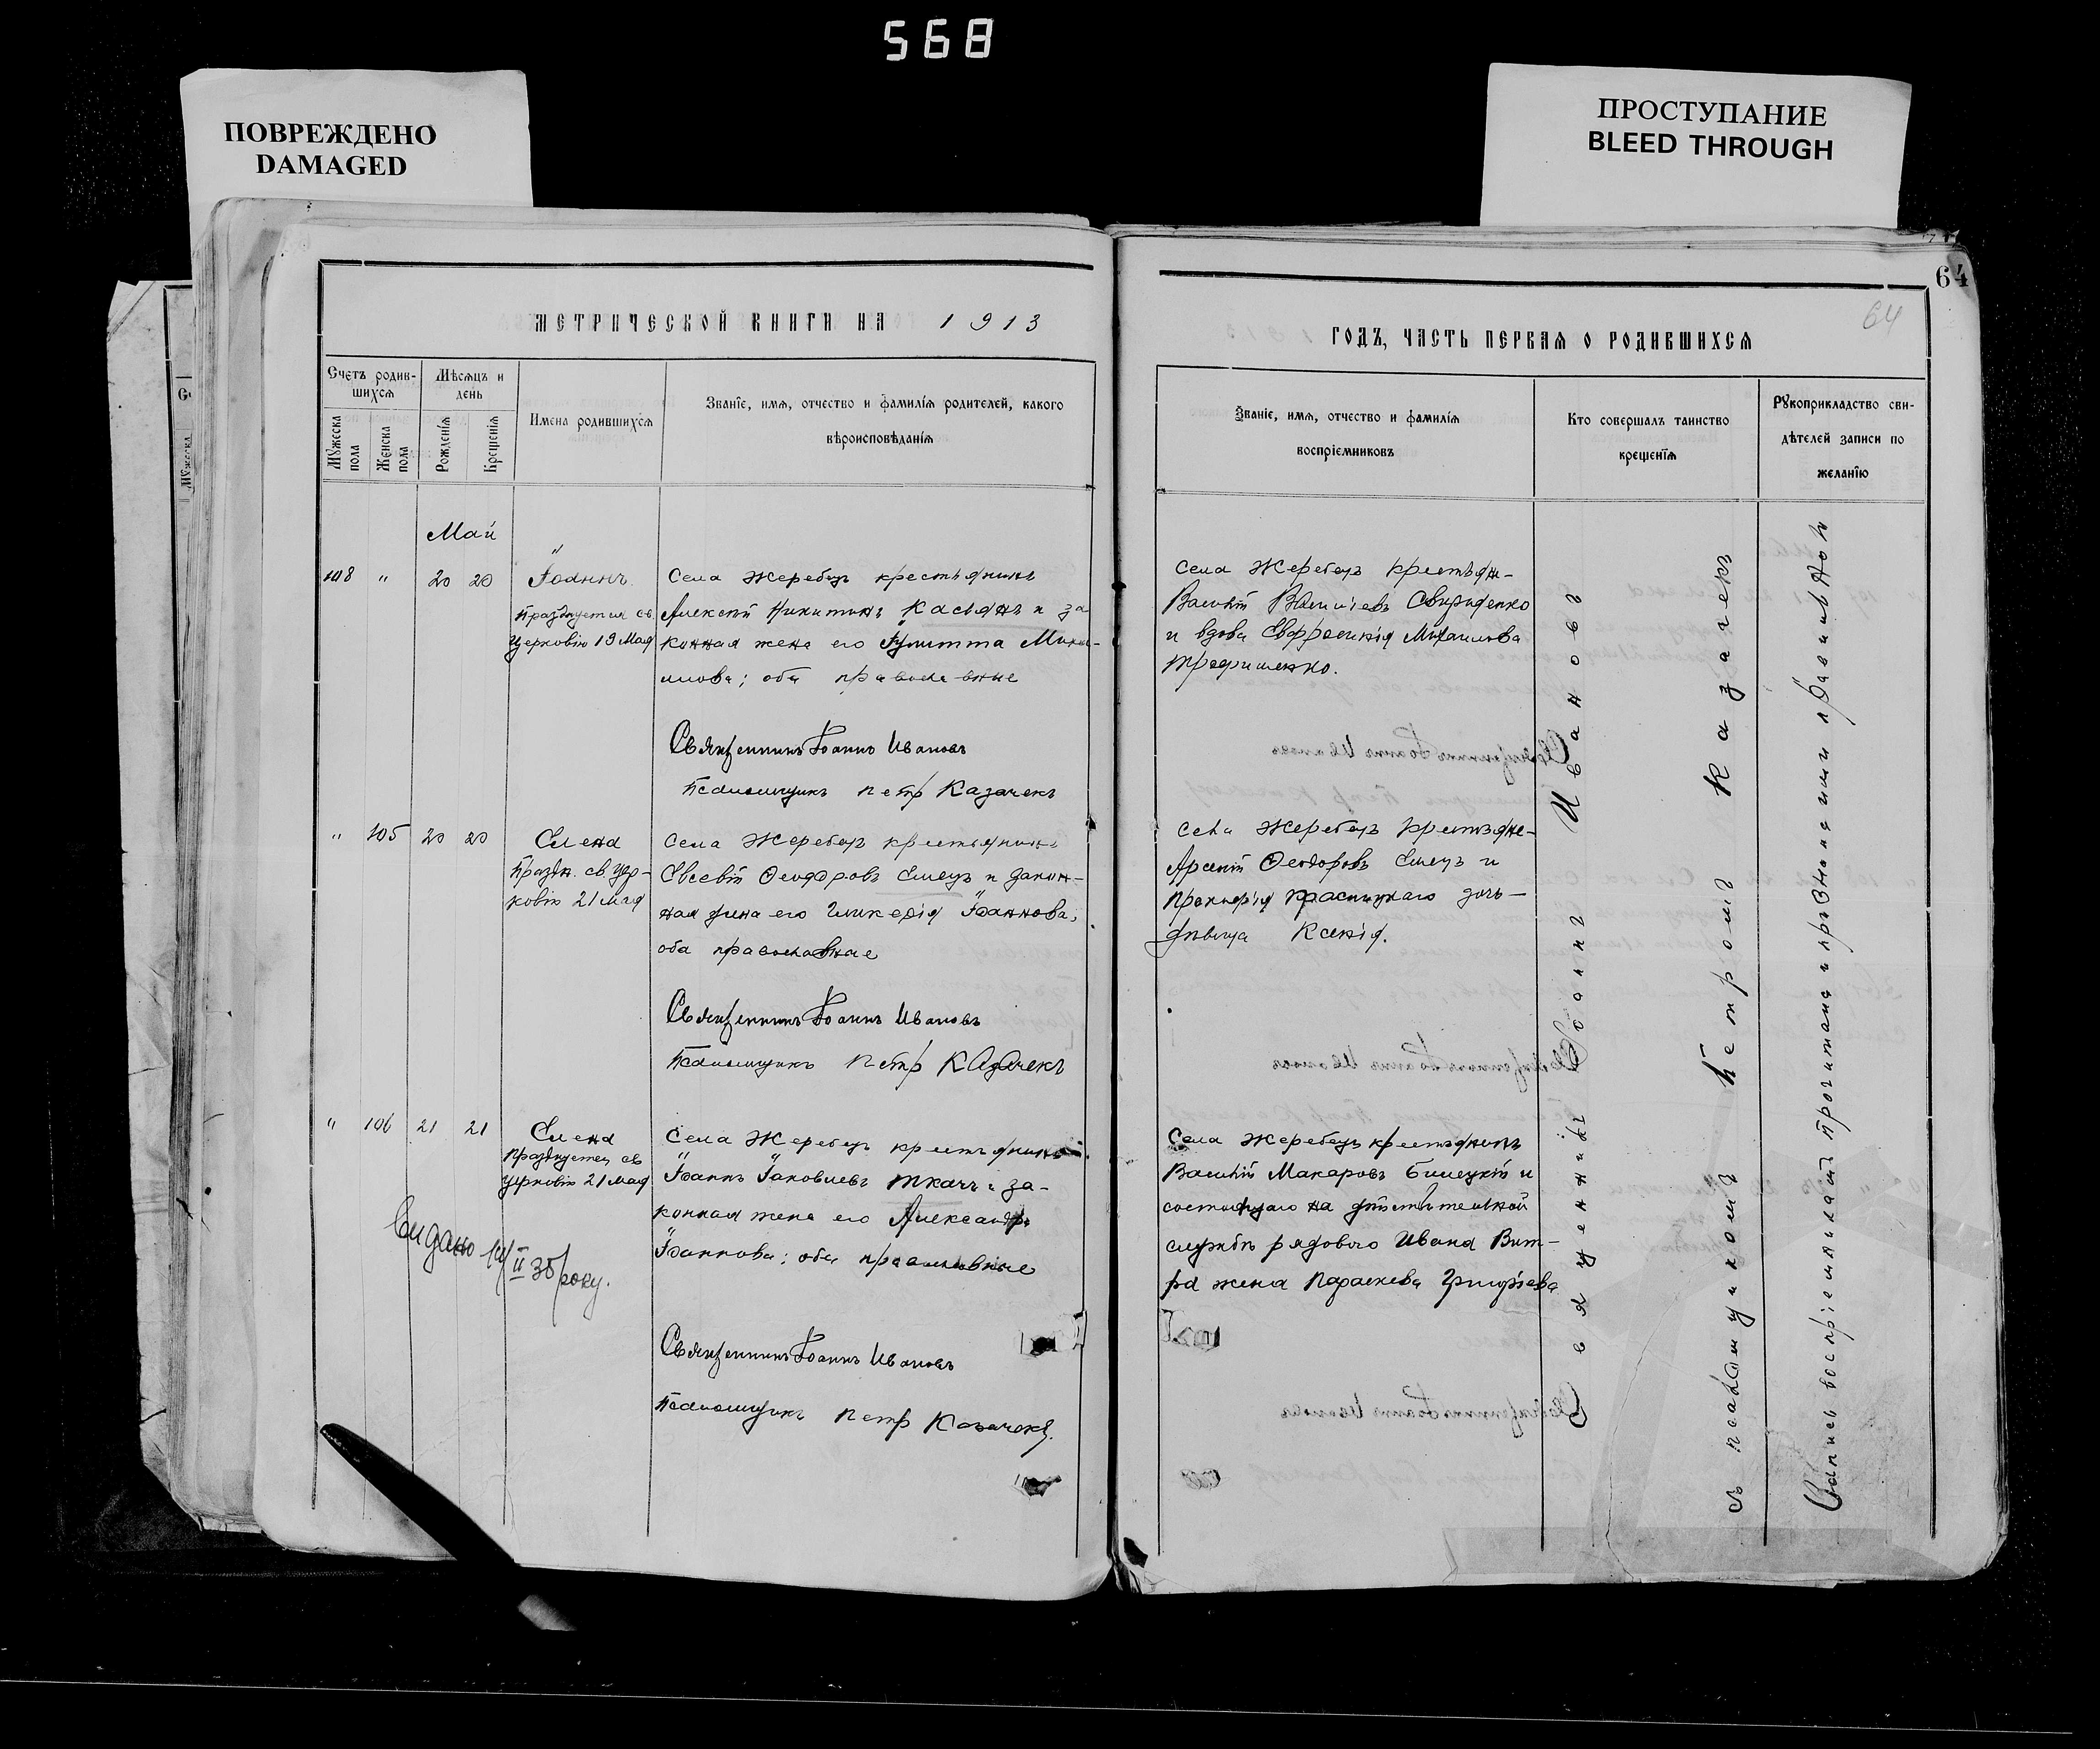 568
ПОВРЕЖДЕНО
DAMAGED
ПРОСТУПАНИЕ
BLEED THROUGH
МЕТРИЧЕСКОЙ КНИГИ НА 1913
Счетъ родив-
шихся
Мужеска пола
Женска пола
Мѣсяцъ и
день
Рожденія
Крещенія
Имена родившихся
Званіе, имя, отчество и фамилія родителей, какого
вѣроисповѣданія
Май
108 " 20 20
Іоаннъ
Празднуется св
Церковію 19 Мая
Села Жеребецъ крестьянинъ
Алексѣй Никитинъ Касьянъ и за
конная жена его Іулитта
оба православные
Священникъ Іоаннъ Ивановъ
Псаломщикъ Петръ Казачекъ
" 105 20 20
Елена
Праздн. св Цер-
ковію 21 Мая
Села Жеребецъ крестьянинъ
Евсевій Ѳеодоровъ Емецъ и закон-
ная жена его Гликерія Іоаннова,
оба православные
Священникъ Іоаннъ Ивановъ
Псаломщикъ Петръ Казачекъ
" 106 21 21
Елена
Празднуется св
Церковію 21 Мая
Села Жеребецъ крестьянинъ
Іоаннъ Іаковлевъ Ткачъ и за-
конная жена его Александра
Іоаннова; оба православные
Видано 14/II 35 року.
Священникъ Іоаннъ Ивановъ
Псаломщикъ Петръ Казачекъ.
64
64
ГОДЪ, ЧАСТЬ ПЕРВАЯ О РОДИВШИХСЯ
Званіе, имя, отчество и фамилія
воспріемниковъ
Кто совершалъ таинство
крещенія
Рукоприкладство сви-
дѣтелей записи по
желанію
Села Жеребецъ крестьян-
Василій Васильевъ Свириденко
и вдова Евфросинія Михаилова
Трофименко.
Села Жеребецъ крестьяне-
Арсеній Ѳеодоровъ Емецъ и
Прокофія Краспицкаго дочь-
дѣвица Ксенія.
Села Жеребецъ крестьянинъ
Василій Макаровъ Билецкій и
состоящаго на дѣйствительной
службѣ рядового Ивана Вит-
ра жена Параскева Григорьева
Священникъ Іоаннъ Ивановъ
съ псаломщикомъ Петромъ Казачекъ
Запись воспріемникамъ прочитана и признана ими правильною